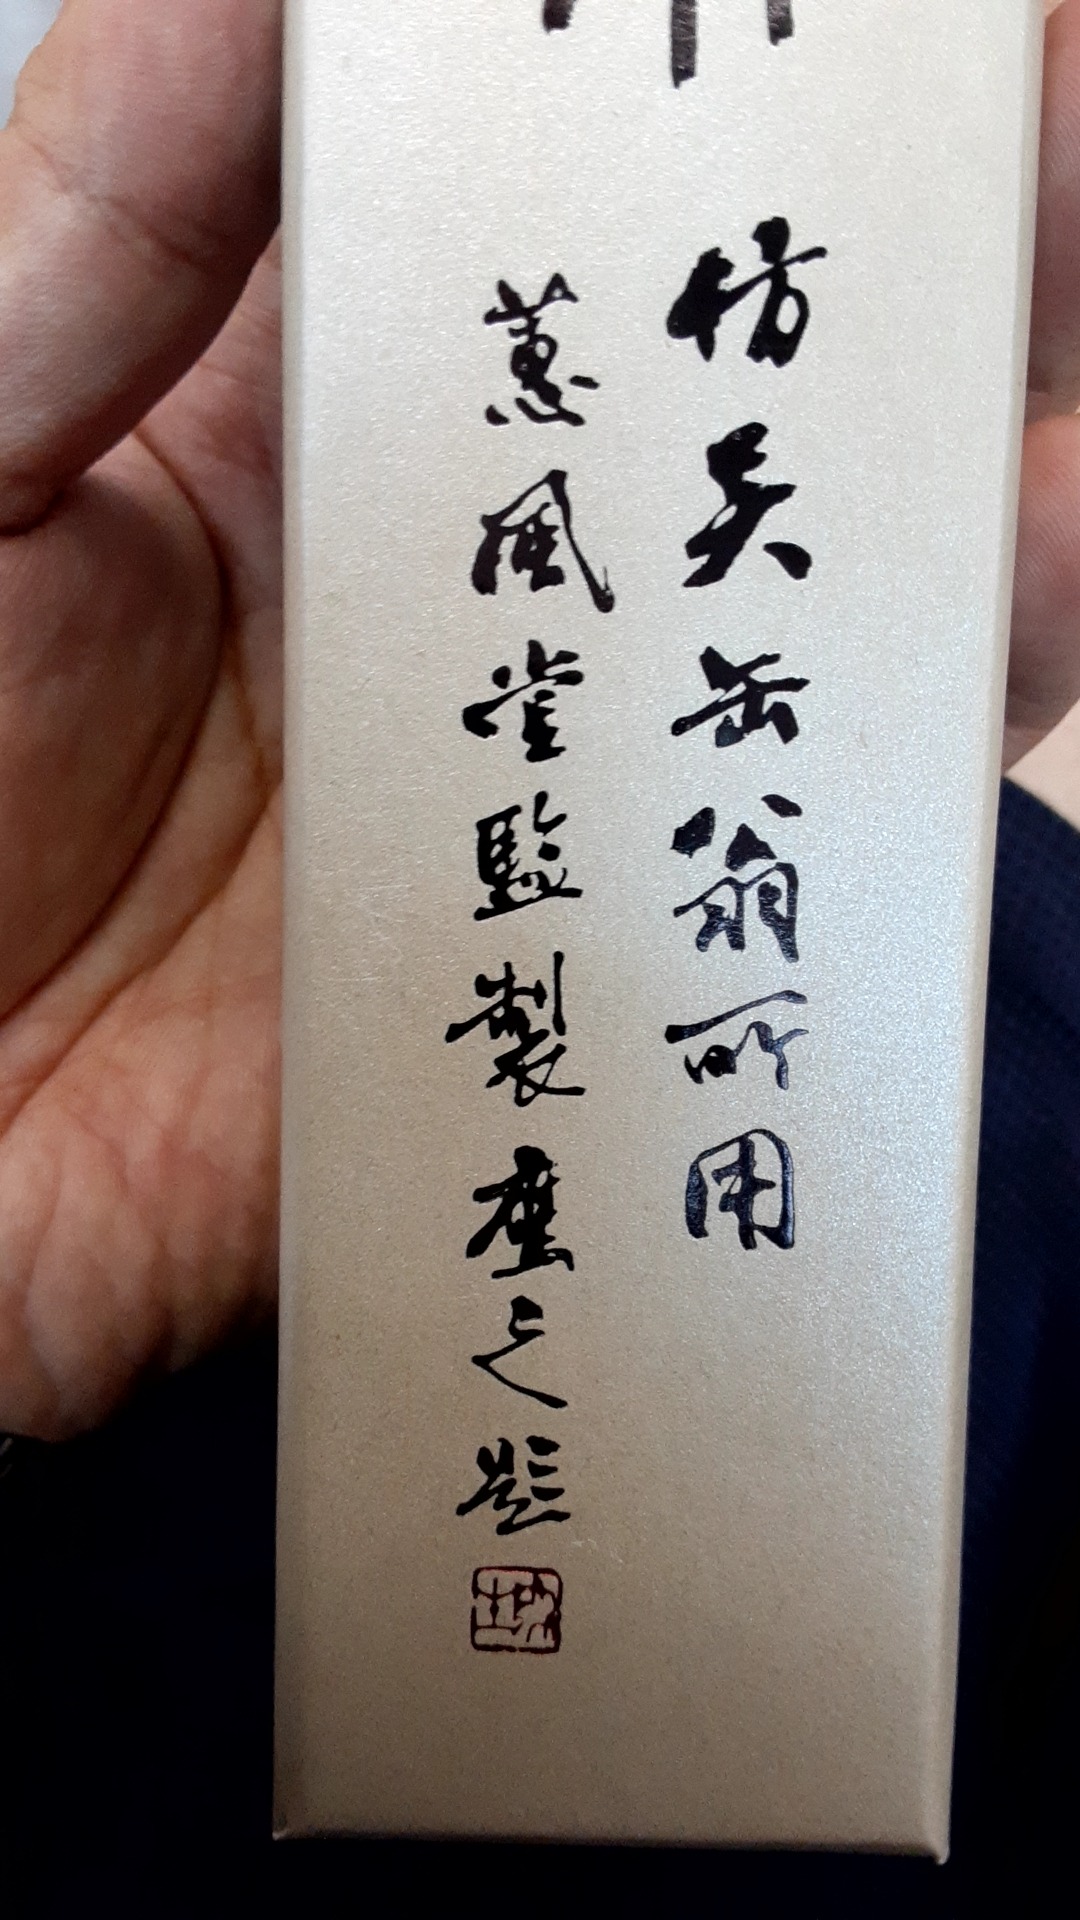 仿吴缶翁所用
蕙風堂監製塵之題